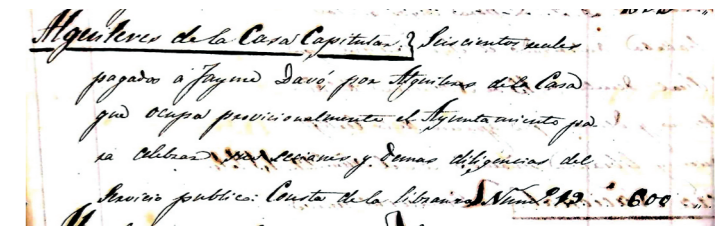 Alquileres de la Casa Capitular.} Seiscientos reales
pagados á Jayme Davó por Alquileres de la Casa
que ocupa provicionalmente el Ayuntamiento pa-
ra celebrar sus seciones y demas diligencias del
Servicio publico: Consta de la libranza Num.º 19 " 600 "